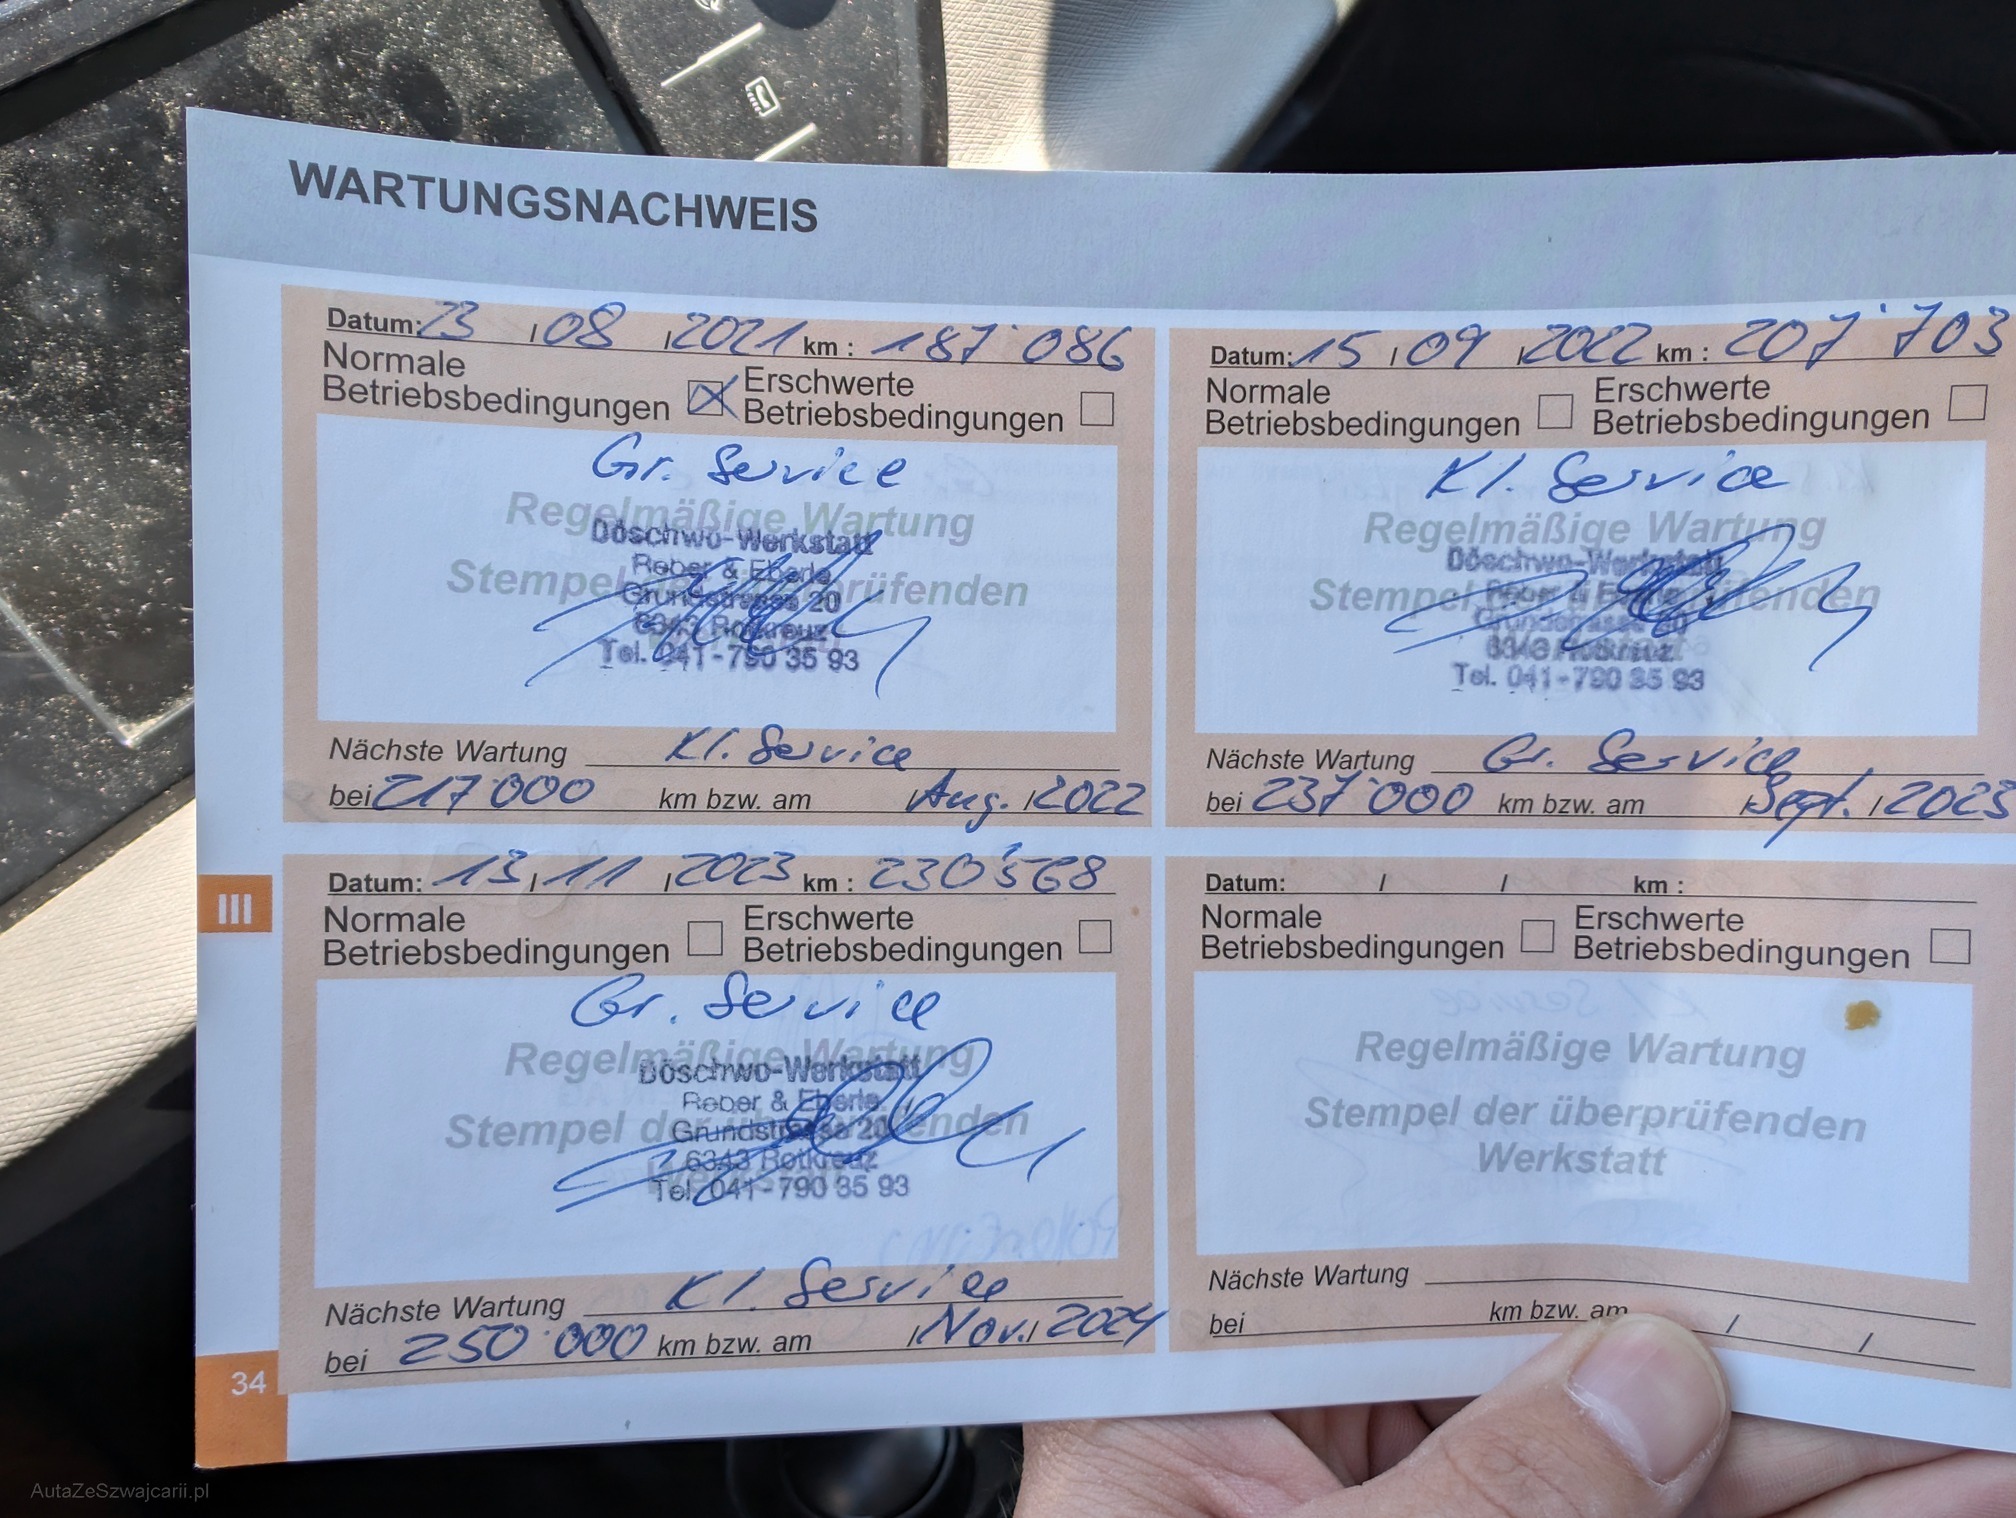 WARTUNGSNACHWEIS
Datum: 23 / 08 / 2021 km : 187'086
Normale
Betriebsbedingungen
Erschwerte
Betriebsbedingungen
Gr. Service
Regelmäßige Wartung
Döschwo-Werkstatt
Reber & Eberle
Stempel prüfenden
Grundstrasse 20
6343 Rotkreuz
Tel. 041-790 35 93
Nächste Wartung Kl. Service
bei 217'000 km bzw. am / Aug. / 2022
Datum: 15 / 09 / 2022 km : 207'703
Normale
Betriebsbedingungen
Erschwerte
Betriebsbedingungen
Kl. Service
Regelmäßige Wartung
Döschwo-Werkstatt
Reber & Eberle
Stempel fenden
Grundstrasse 20
6343 Rotkreuz
Tel. 041-790 35 93
Nächste Wartung Gr. Service
bei 237'000 km bzw. am / Sept. / 2023
III
Datum: 13 / 11 / 2023 km : 230'568
Normale
Betriebsbedingungen
Erschwerte
Betriebsbedingungen
Gr. Service
Regelmäßige Wartung
Döschwo-Werkstatt
Reber & Eberle
Stempel enden
Grundstrasse 20
6343 Rotkreuz
Tel. 041-790 35 93
Nächste Wartung Kl. Service
bei 250'000 km bzw. am / Nov. / 2024
Datum: / / km :
Normale
Betriebsbedingungen
Erschwerte
Betriebsbedingungen
Regelmäßige Wartung
Stempel der überprüfenden
Werkstatt
Nächste Wartung
bei km bzw. am / /
34
AutaZeSzwajcarii.pl